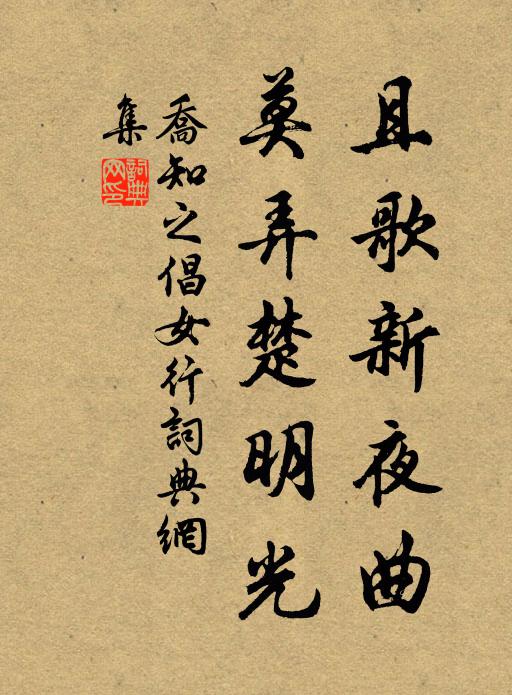 且歌新夜曲
莫弄楚明光
喬知之倡女行詞典網
集
詞典
网印